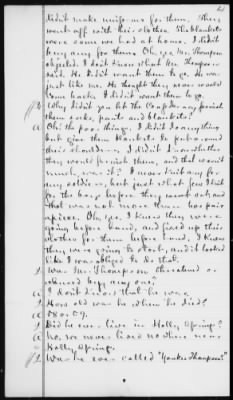 didn't make uniforms for them. They
went off with their clothes. The blankets
were some we had at home. I didn't
buy any for them. Oh, yes, Mr. Thompson
objected. I don't know what Mr. Thompson
said. He didn't want them to go. He was
just like me. He thought they never would
come back. I didn't want them to go.
Q Why did you let the Confederacy
them socks, pants and blankets?
A Oh! the poor things, I didn't do anything
but give them blankets to put around
their shoulders. I didn't know whether
they would furnish them, and that wasn't
much, was it? I never knit any for
any soldiers, but just what few I knit
for the boys before they went out, and
that was not more than two pair
apiece. Oh, yes, I knew they were
going before hand, and fixed up their
clothes for them before hand. I knew
they were going to start, and it looked
like I was obliged to do that.
Q Was Mr. Thompson
any one?
A I don't know that he was.
Q How old was he when he died?
A 58 or 59.
Q Did he ever live in Holly Springs?
A No, we never lived no where near
Holly Springs.
Q Was he ever called "Yankee Thompson?"